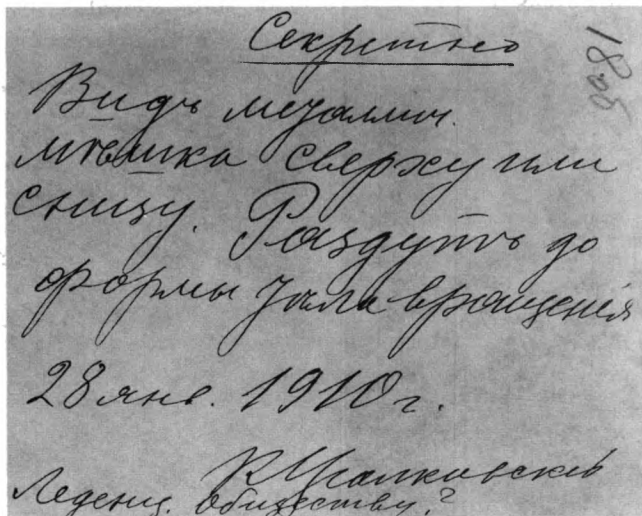 Секретно
Видъ металлич.
мѣшка сверху или
снизу. Раздутъ до
формы тѣла вращенія
28 янв. 1910 г.
К Ціолковскій
Леденц. обществу?